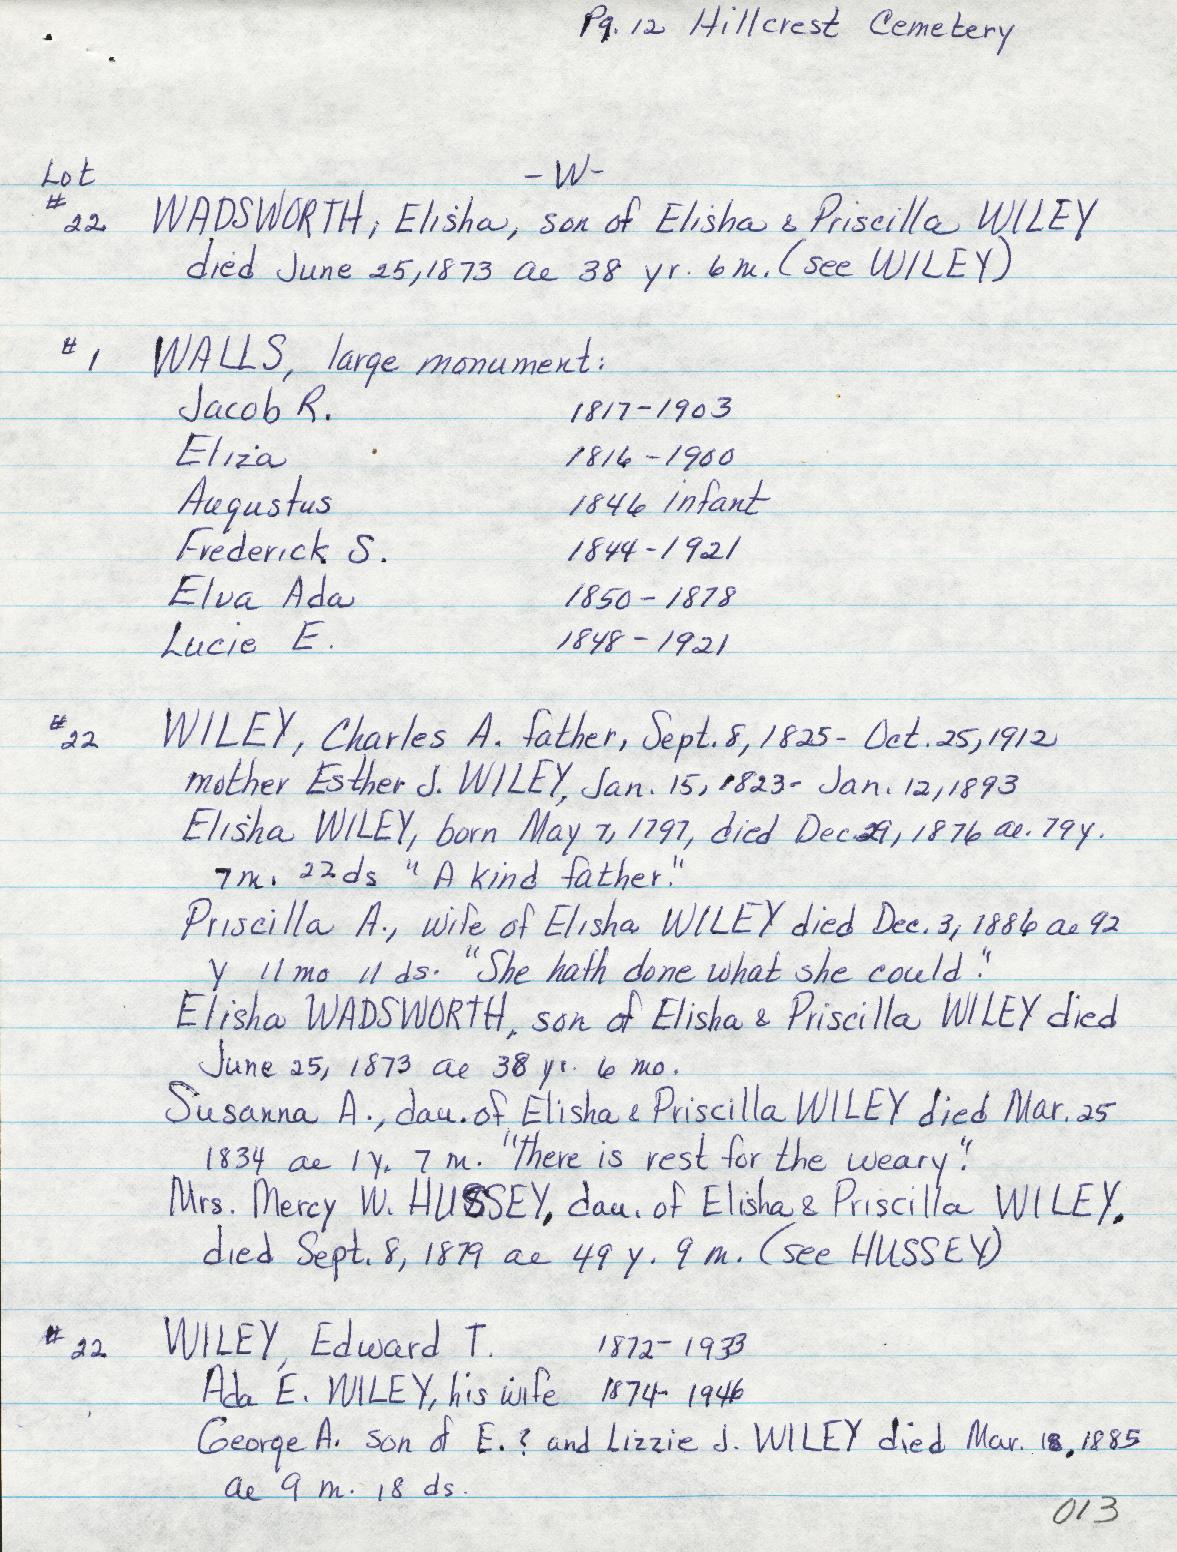 Pg. 12 Hillcrest Cemetery
Lot -W-
#22 WADSWORTH, Elisha, son of Elisha & Priscilla WILEY
died June 25, 1873 ae 38 yr. 6 m. (see WILEY)
#1 WALLS, large monument:
Jacob R. 1817-1903
Eliza 1816-1900
Augustus 1846 infant
Frederick S. 1844-1921
Elva Ada 1850-1878
Lucie E. 1848-1921
#22 WILEY, Charles A. father, Sept. 8, 1825- Oct. 25, 1912
mother Esther J. WILEY, Jan. 15, 1823- Jan. 12, 1893
Elisha WILEY, born May 7, 1797, died Dec. 29, 1876 ae. 79y.
7m. 22ds "A kind father."
Priscilla A., wife of Elisha WILEY died Dec. 3, 1886 ae 92
y 11 mo 11 ds. "She hath done what she could."
Elisha WADSWORTH, son of Elisha & Priscilla WILEY died
June 25, 1873 ae 38 yr. 6 mo.
Susanna A., dau. of Elisha & Priscilla WILEY died Mar. 25
1834 ae 1y. 7 m. "There is rest for the weary."
Mrs. Mercy W. HUSSEY, dau. of Elisha & Priscilla WILEY,
died Sept. 8, 1879 ae 49 y. 9 m. (see HUSSEY)
#22 WILEY, Edward T. 1872-1933
Ada E. WILEY, his wife 1874-1946
George A. son of E. ? and Lizzie J. WILEY died Mar. 18, 1885
ae 9 m. 18 ds.
013